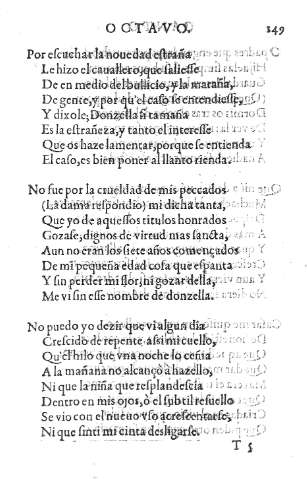 OCTAVO. 149
Por escuchar la nouedad estraña
Le hizo el cauallero, que saliesse
De en medio del bullicio, y la maraña,
De gente, y por qu'el caso se entendiesse,
Y dixole; Donzella si tamaña
Es la estrañeza, y tanto el interesse
Que os haze lamentar, porque se entienda
El caso, es bien poner al llanto rienda.
No fue por la crueldad de mis peccados
(La dama respondio) mi dicha tanta,
Que yo de aquessos titulos honrados
Gozase; dignos de virtud mas sancta,
Aun no eran los siete años començados
De mi pequeña edad cosa que espanta
Y sin perder mi flor, ni gozar della,
Me vi sin esse nombre de donzella.
No puedo yo dezir que vi algun dia
Crescido de repente assi mi cuello,
Qu'el hilo que vna noche lo ceñia
A la mañana no alcançò a hazello,
Ni que la niña que resplandescia
Dentro en mis ojos, ò el subtil resuello
Se vio con el nueuo vso acrescentarse,
Ni que sinti mi cinta desligarse.
T 5